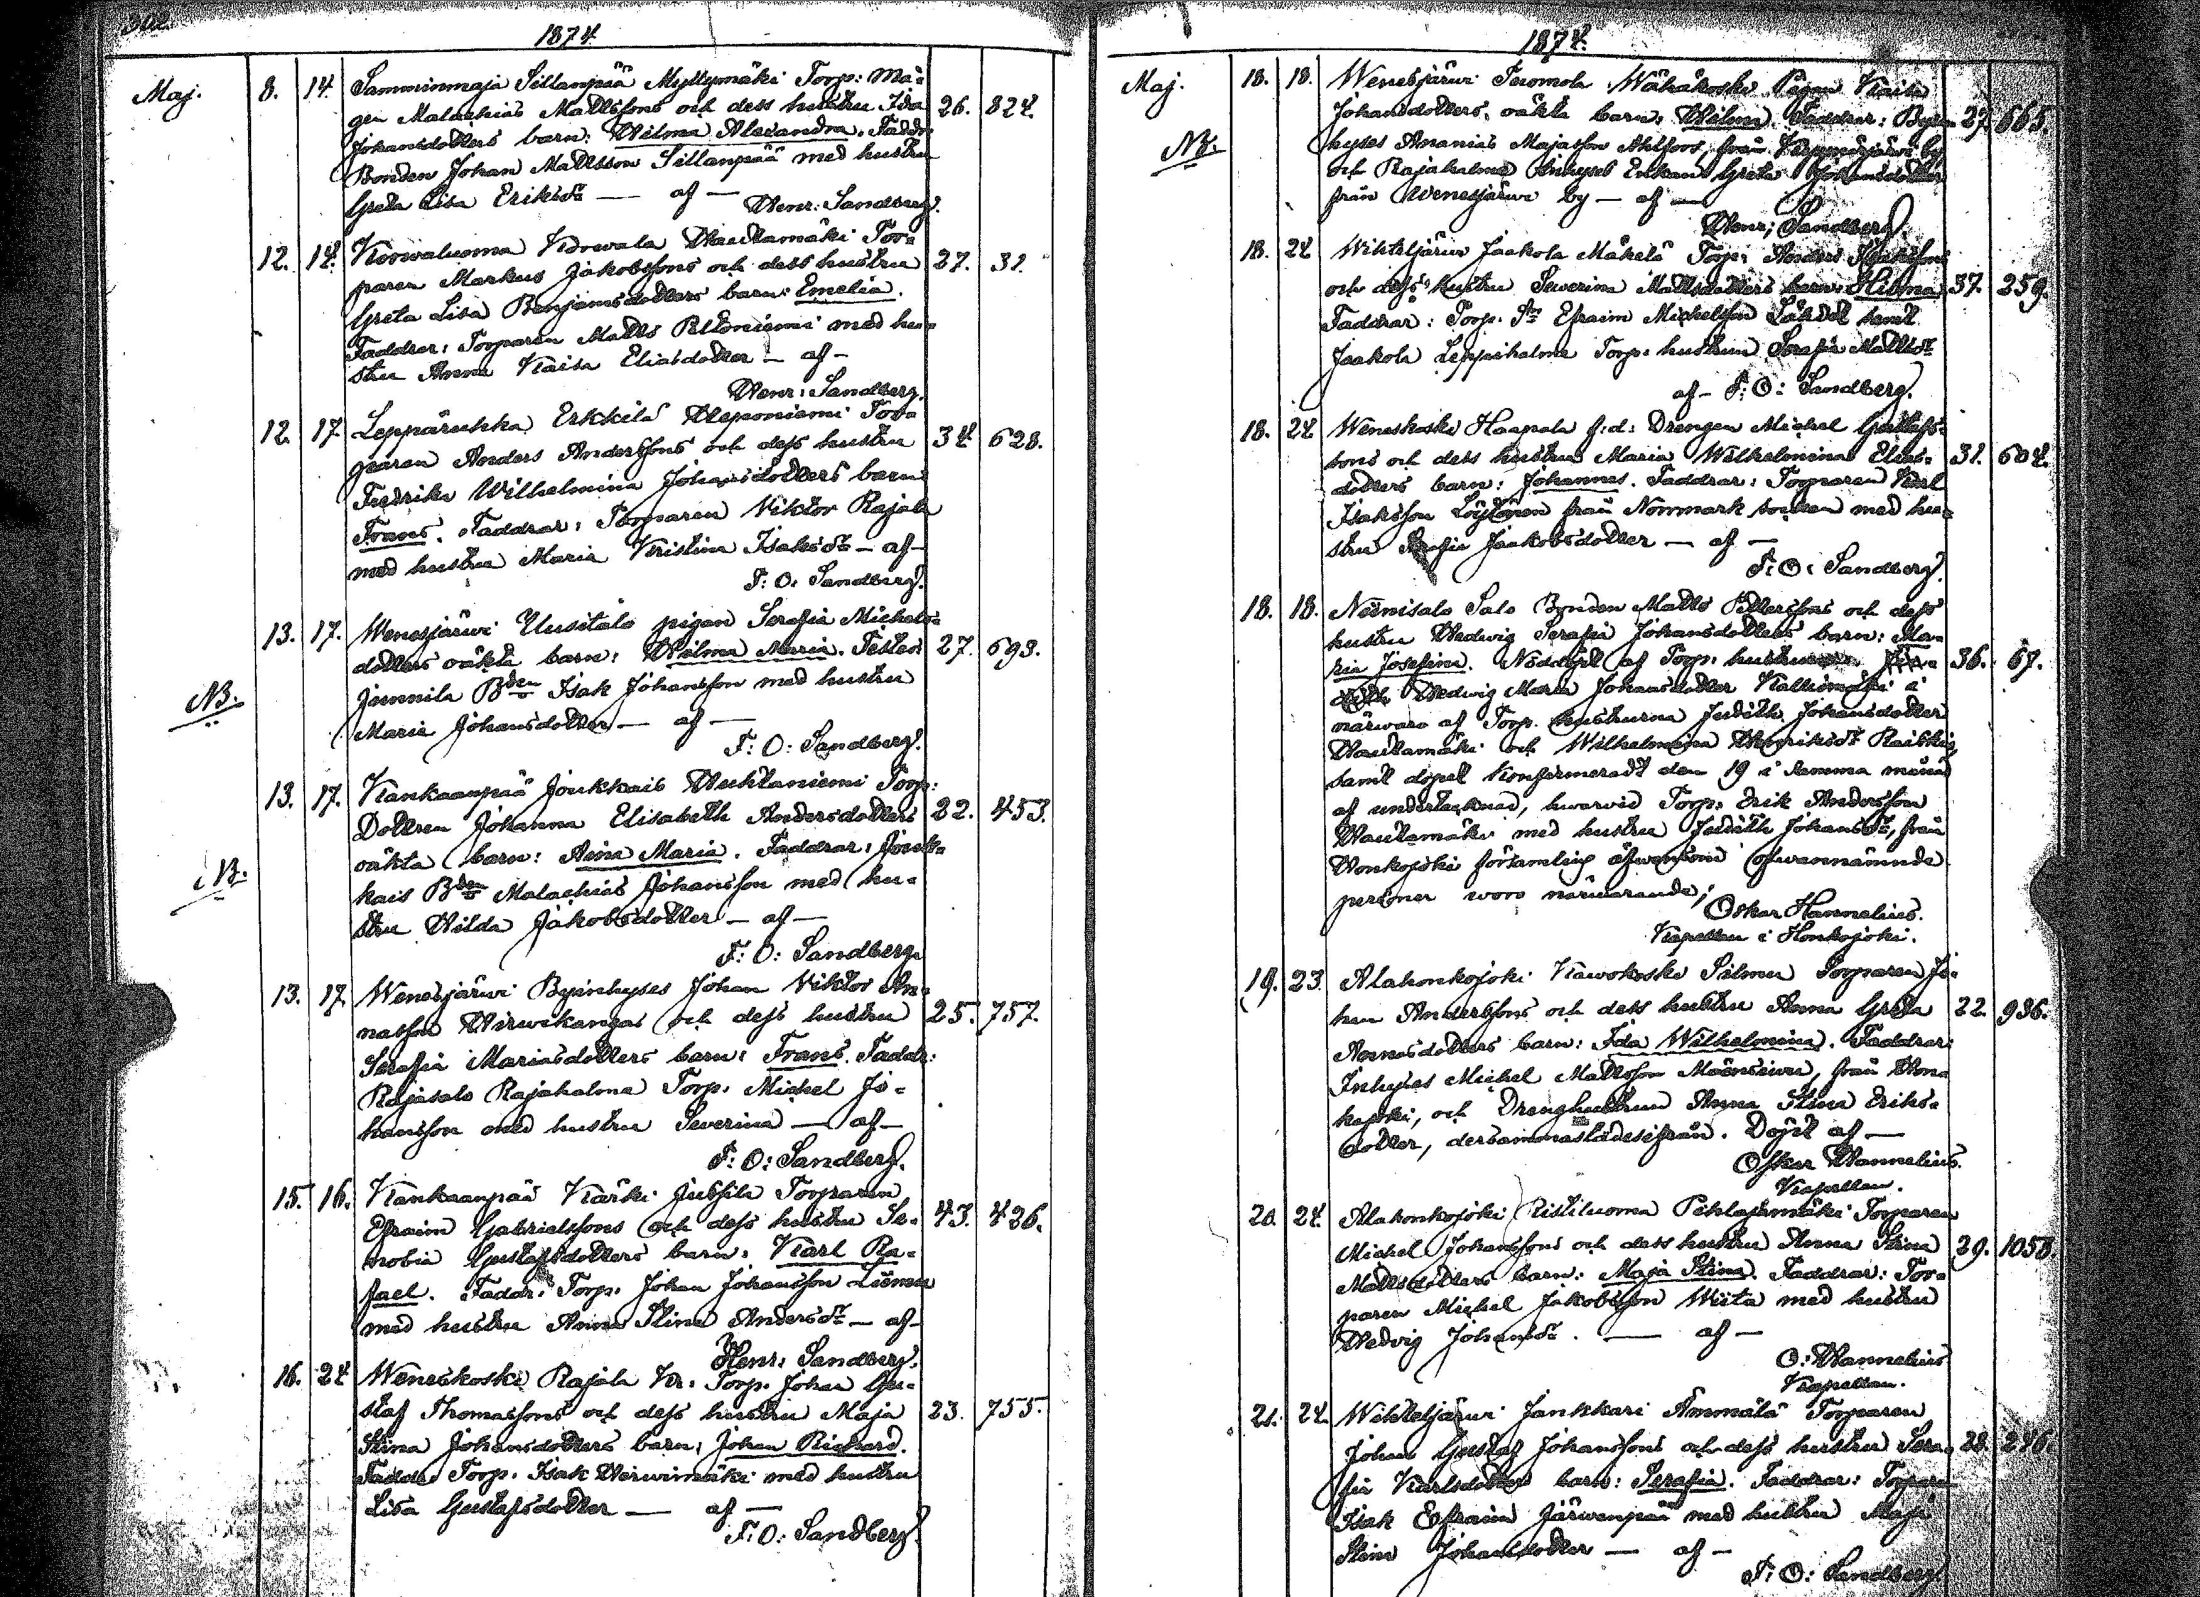 302
1874
Maj. 8. 14. Samminmaja Sillanpää Myllymäki Torp: Mä-
gen Malachias Mattssons och dess hustru Ida 26. 824.
Johansdotters barn: Wilma Alexandra. Faddr:
Bonden Johan Mattsson Sillanpää med hustru
Greta Lisa Eriksdr — af —
Henr: Sandberg.
12. 14. Korwaluoma Korwala Hautamäki Tor-
paren Markus Jakobssons och dess hustru 27. 31.
Greta Lisa Benjamsdotters barn: Emelia.
Faddrar: Torparen Matts Peltoniemi med hu-
stru Anna Kaisa Eliasdotter — af —
Henr: Sandberg.
12. 17. Leppäruhka Erkkilä Heponiemi Tor-
paren Anders Anderssons och dess hustru 34. 628.
Fredrika Wilhelmina Johansdotters barn
Frans. Faddrar: Torparen Viktor Rajala
med hustru Maria Kristina Isaksdr — af —
F: O: Sandberg.
13. 17. Wenesjärwi Uusitalo pigan Serafia Michels-
dotters oäkta barn: Hilma Maria. Testes: 27. 693.
NB. Junnila Bden Isak Johansson med hustru
Maria Johansdotter — af —
F: O: Sandberg.
13. 17. Kankaanpää Joukkais Huhtaniemi Torp:
Dottren Johanna Elisabeth Andersdotters 22. 453.
oäkta barn: Aina Maria. Faddrar: Jouk-
NB. kais Bden Malachias Johansson med hu-
stru Hilda Jakobsdotter — af —
F: O: Sandberg.
13. 17. Wenesjärwi Byinhyses Johan Viktor An-
nasson Hirwikangas och dess hustru 25. 757.
Serafia Mariasdotters barn: Frans. Faddr:
Rajasalo Rajahalma Torp: Michel Jo-
hansson med hustru Severina — af —
F: O: Sandberg.
15. 16. Kankaanpää Kärki Jussila Torparen
Efraim Gabrielssons och dess hustru Se- 43. 426.
nobia Gustafsdotters barn: Karl Ra-
fael. Faddr: Torp: Johan Johansson
med hustru Anna Stina Andersdr — af —
Henr: Sandberg.
16. 24. Weneskoski Rajala Torp. Johan Gu-
staf Thomassons och dess hustru Maja 23. 755.
Stina Johansdotters barn: Johan Richard.
Faddr: Torp. Isak Hirwimäki med hustru
Lisa Gustafsdotter — af —
F: O: Sandberg.
1874.
Maj. 18. 18. Wenesjärwi Tuomola Wähäkoski Pigan Kaisa
Johansdotters, oäkta barn: Hilma. Faddrar: Byin- 27. 665.
NB. hyses Ananias Majasson Ahlfors, från by
och Rajahalma Inhyses Enkan Greta Johansdotter
från Wenesjärwi by — af —
Henr: Sandberg.
18. 24. Wihteljärwi Jaakola Mäkelä Torp: Anders Isakssons
och dess hustru Severina Mattsdotters barn: Hilma 37. 259.
Faddrar: Torp. Sn Efraim Michelsson samt
Jaakola Leppihalme Torp: hustrun Serafia Mattsdr
af — F: O: Sandberg.
18. 24. Weneskoski Haapala f: d: Drengen Michel Gustafs-
sons och dess hustru Maria Wilhelmina Elias- 31. 604.
dotters barn: Johannes. Faddrar: Torparen Karl
Isaksson Löytönen från Norrmark socken med hu-
stru Serafia Jaakobsdotter — af —
F: O: Sandberg.
18. 18. Niinisalo Salo Bonden Matts Pettersons och dess
hustru Hedwig Serafia Johansdotters barn: Ma-
ria Josefina. Nöddöpt af Torp. hustrun 36. 67.
Hedwig Maria Johansdotter Kalliomäki i
närwaro af Torp. hustrurna Judith Johansdotter
Hautamäki och Wilhelmina Henriksdr
samt dopet konfirmeradt den 19 i samma månad
af undertecknad, hwarvid Torp: Erik Andersson
Hautamäki med hustru Judith Johansdr, från
Honkajoki församling äfwensom ofwannämnde
personer woro närwarande;
Oskar Hannelius.
Kapellan i Honkajoki.
19. 23. Alahonkajoki Kawokoski Silmu Torparen Jo-
han Anderssons och dess hustru Anna Greta 22. 936.
Annasdotters barn: Ida Wilhelmina. Faddrar:
Inhyses Michel Mattsson från Hon-
kajoki, och Drenghustrun Anna Stina Eriks-
dotter, dersammastädesifrån. Döpt af —
Oskar Hannelius.
Kapellan.
20. 24. Alahonkajoki Ristiluoma Pihlajamäki Torparen
Michel Johanssons och dess hustru Anna Stina 29. 1058.
Mattsdotters barn: Maja Stina. Faddrar: Tor-
paren Michel Jakobsson Wiita med hustru
Hedvig Johansdr. — af —
O: Hannelius
Kapellan.
21. 24. Wihteljärwi Jankkari Ämmälä Torparen
Johan Gustaf Johanssons och dess hustru Sera- 28. 246.
fia Karlsdotters barn: Serafia. Faddrar: Torparen
Isak Efraim Järwenpää med hustru Maja
Stina Johansdotter — af —
F: O: Sandberg.